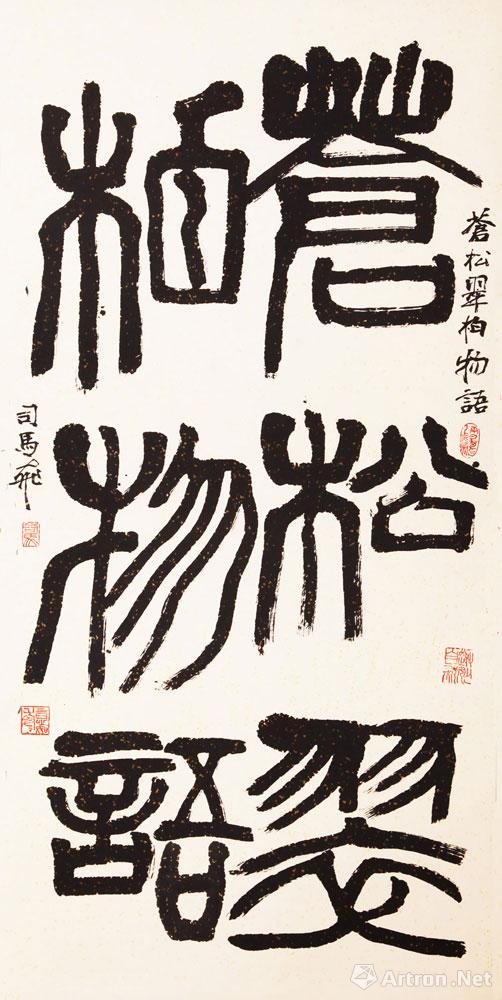 蒼松翠柏物語
蒼松翠
柏物語
司馬飛
Artron.Net